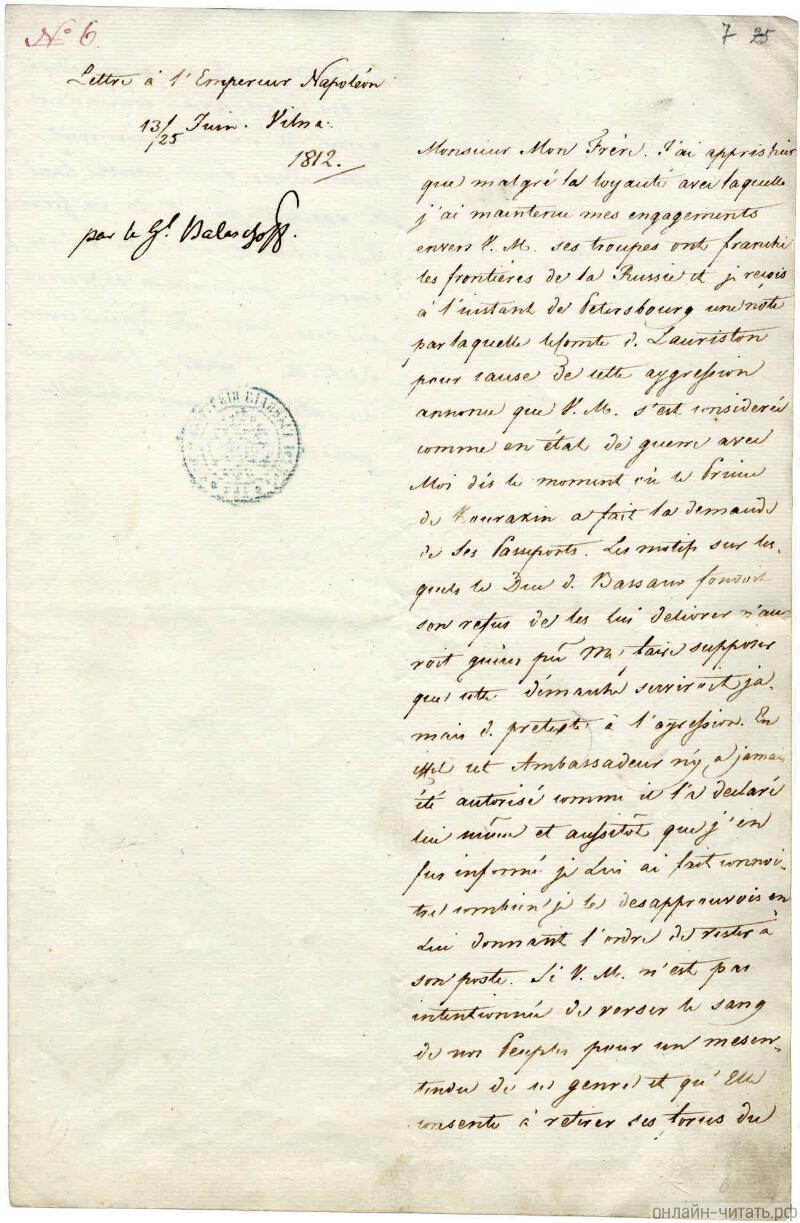 No 6.
7 25
Lettre à l'Empereur Napoléon
13/25 Juin. Vilna.
1812.
par le Gl. Balaschoff.
Monsieur Mon Frère. J'ai appris hier
que malgré la loyauté avec laquelle
j'ai maintenu mes engagements
envers V. M. ses troupes ont franchi
les frontières de la Russie et je reçois
à l'instant de Petersbourg une note
par laquelle le Comte d. Lauriston
pour cause de cette aggression
annonce que V. M. s'est considerée
comme en état de guerre avec
Moi dès le moment où le Prince
de Kourakin a fait la demande
de ses Passeports. Les motifs sur les-
quels le Duc d. Bassano fondoit
son refus de les lui delivrer n'au
roit guères pû Me faire supposer
que cette démarche serviroit ja-
mais d. pretexte à l'agression. En
effet cet Ambassadeur n'y a jamais
été autorisé comme il l'a declaré
lui même et aussitôt que j'en
fus informé je lui ai fait connoi-
tre combien je le desapprouvois en
Lui donnant l'ordre de rester à
son poste. Si V. M. n'est pas
intentionnée de verser le sang
de nos Peuples pour un mesen-
tendu de ce genre et qu'Elle
consente à retirer ses forces du
онлайн-читать.рф